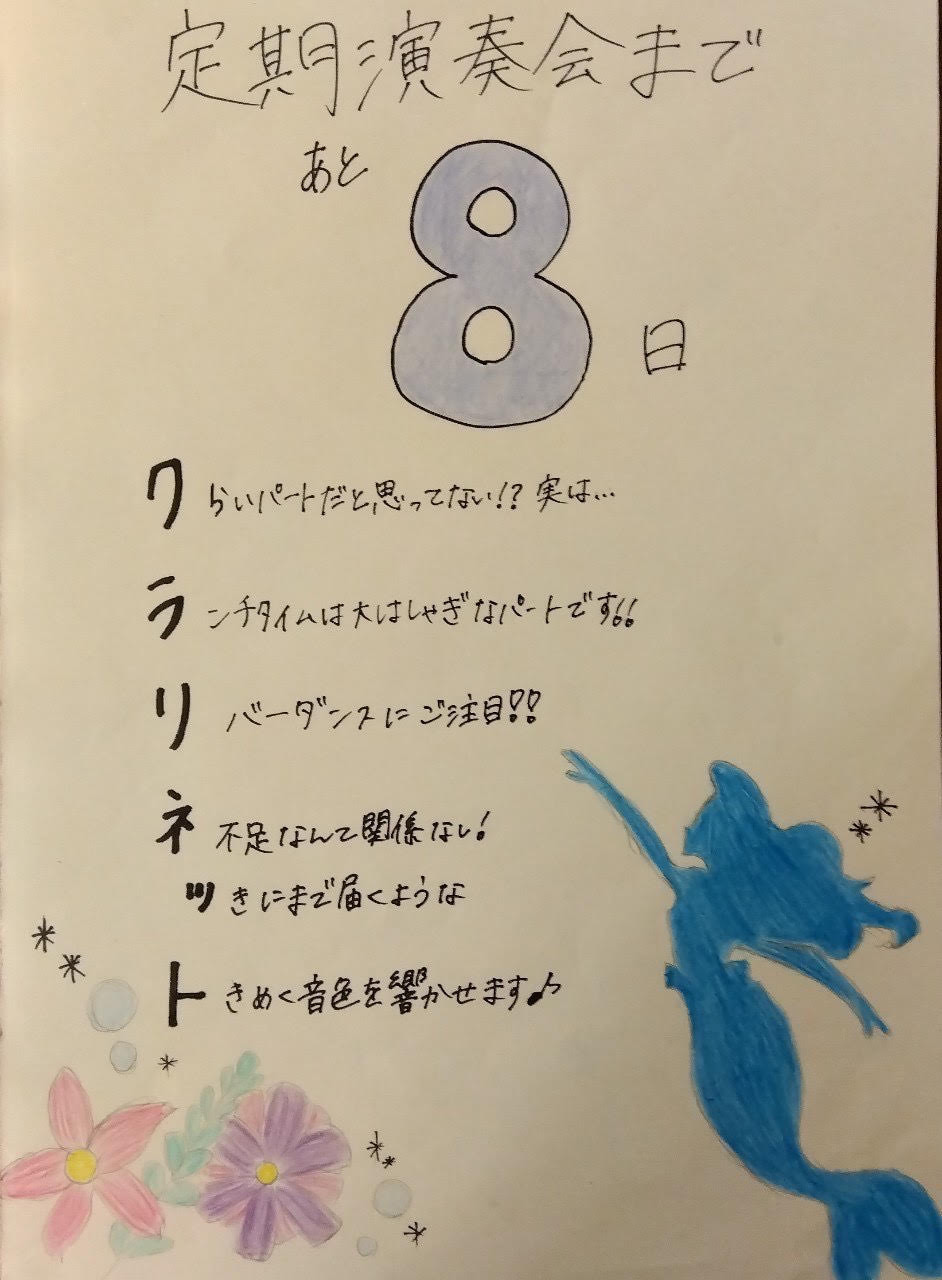 定期演奏会まで
あと 8 日
クらいパートだと思ってない!? 実は…
ランチタイムは大はしゃぎなパートです!!
リバーダンスにご注目!!
ネ不足なんて関係ない!
ツきにまで届くような
トきめく音色を響かせます♪